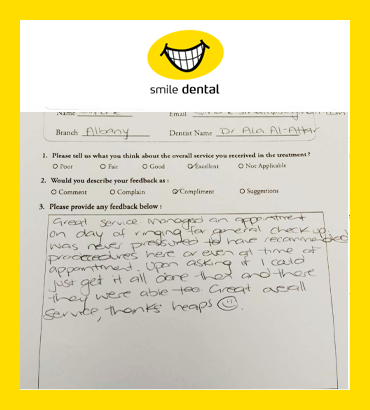 smile dental
Name
Email
Branch Albany
Dentist Name Dr Ala Al-Attar
1. Please tell us what you think about the overall service you received in the treatment?
O Poor O Fair O Good O Excellent O Not Applicable
2. Would you describe your feedback as :
O Comment O Complain O Compliment O Suggestions
3. Please provide any feedback below :
Great service managed an appointment
on day of ringing for general check up.
was never pressured to have recommended
proceedures here or even at time of
appointment. Upon asking if I could
just get it all done then and there
they were able too. Great overall
service, thanks heaps